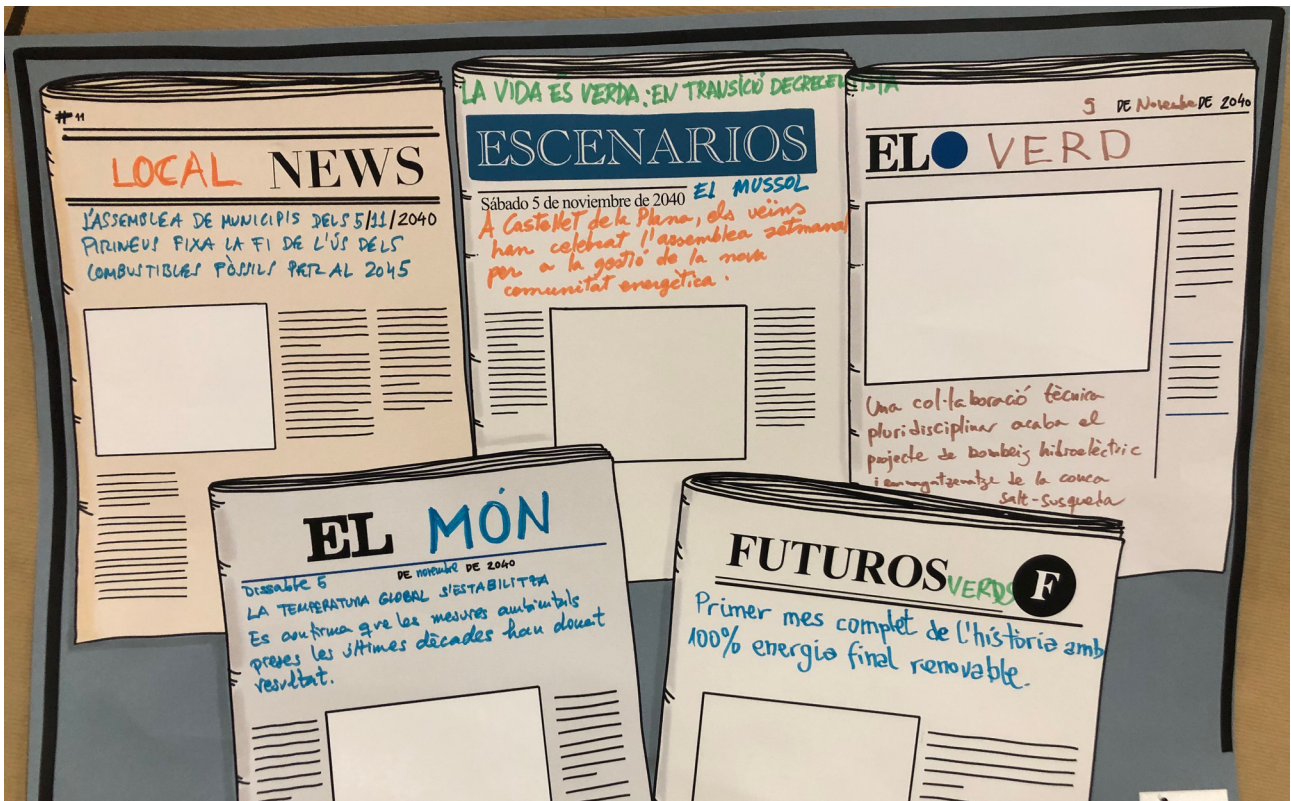 # 11
LOCAL NEWS
L'ASSEMBLEA DE MUNICIPIS DELS 5/11/2040
PIRINEUS FIXA LA FI DE L'ÚS DELS
COMBUSTIBLES FÒSSILS PER AL 2045
LA VIDA ÉS VERDA: EN TRANSICIÓ DECREIXENTISTA
ESCENARIOS
Sábado 5 de noviembre de 2040 EL MUSSOL
A Castellet de la Plana, els veïns
han celebrat l'assemblea setmanal
per a la gestió de la nova
comunitat energètica.
5 DE Novembre DE 2040
EL VERD
Una col·laboració tècnica
pluridisciplinar acaba el
projecte de bombeig hidroelèctric
i emmagatzematge de la conca
Salt-Susqueda
EL MÓN
Dissabte 5 DE novembre DE 2040
LA TEMPERATURA GLOBAL S'ESTABILITZA
Es confirma que les mesures ambientals
preses les últimes dècades han donat
resultat.
FUTUROS VERDS F
Primer mes complet de l'història amb
100% energia final renovable.